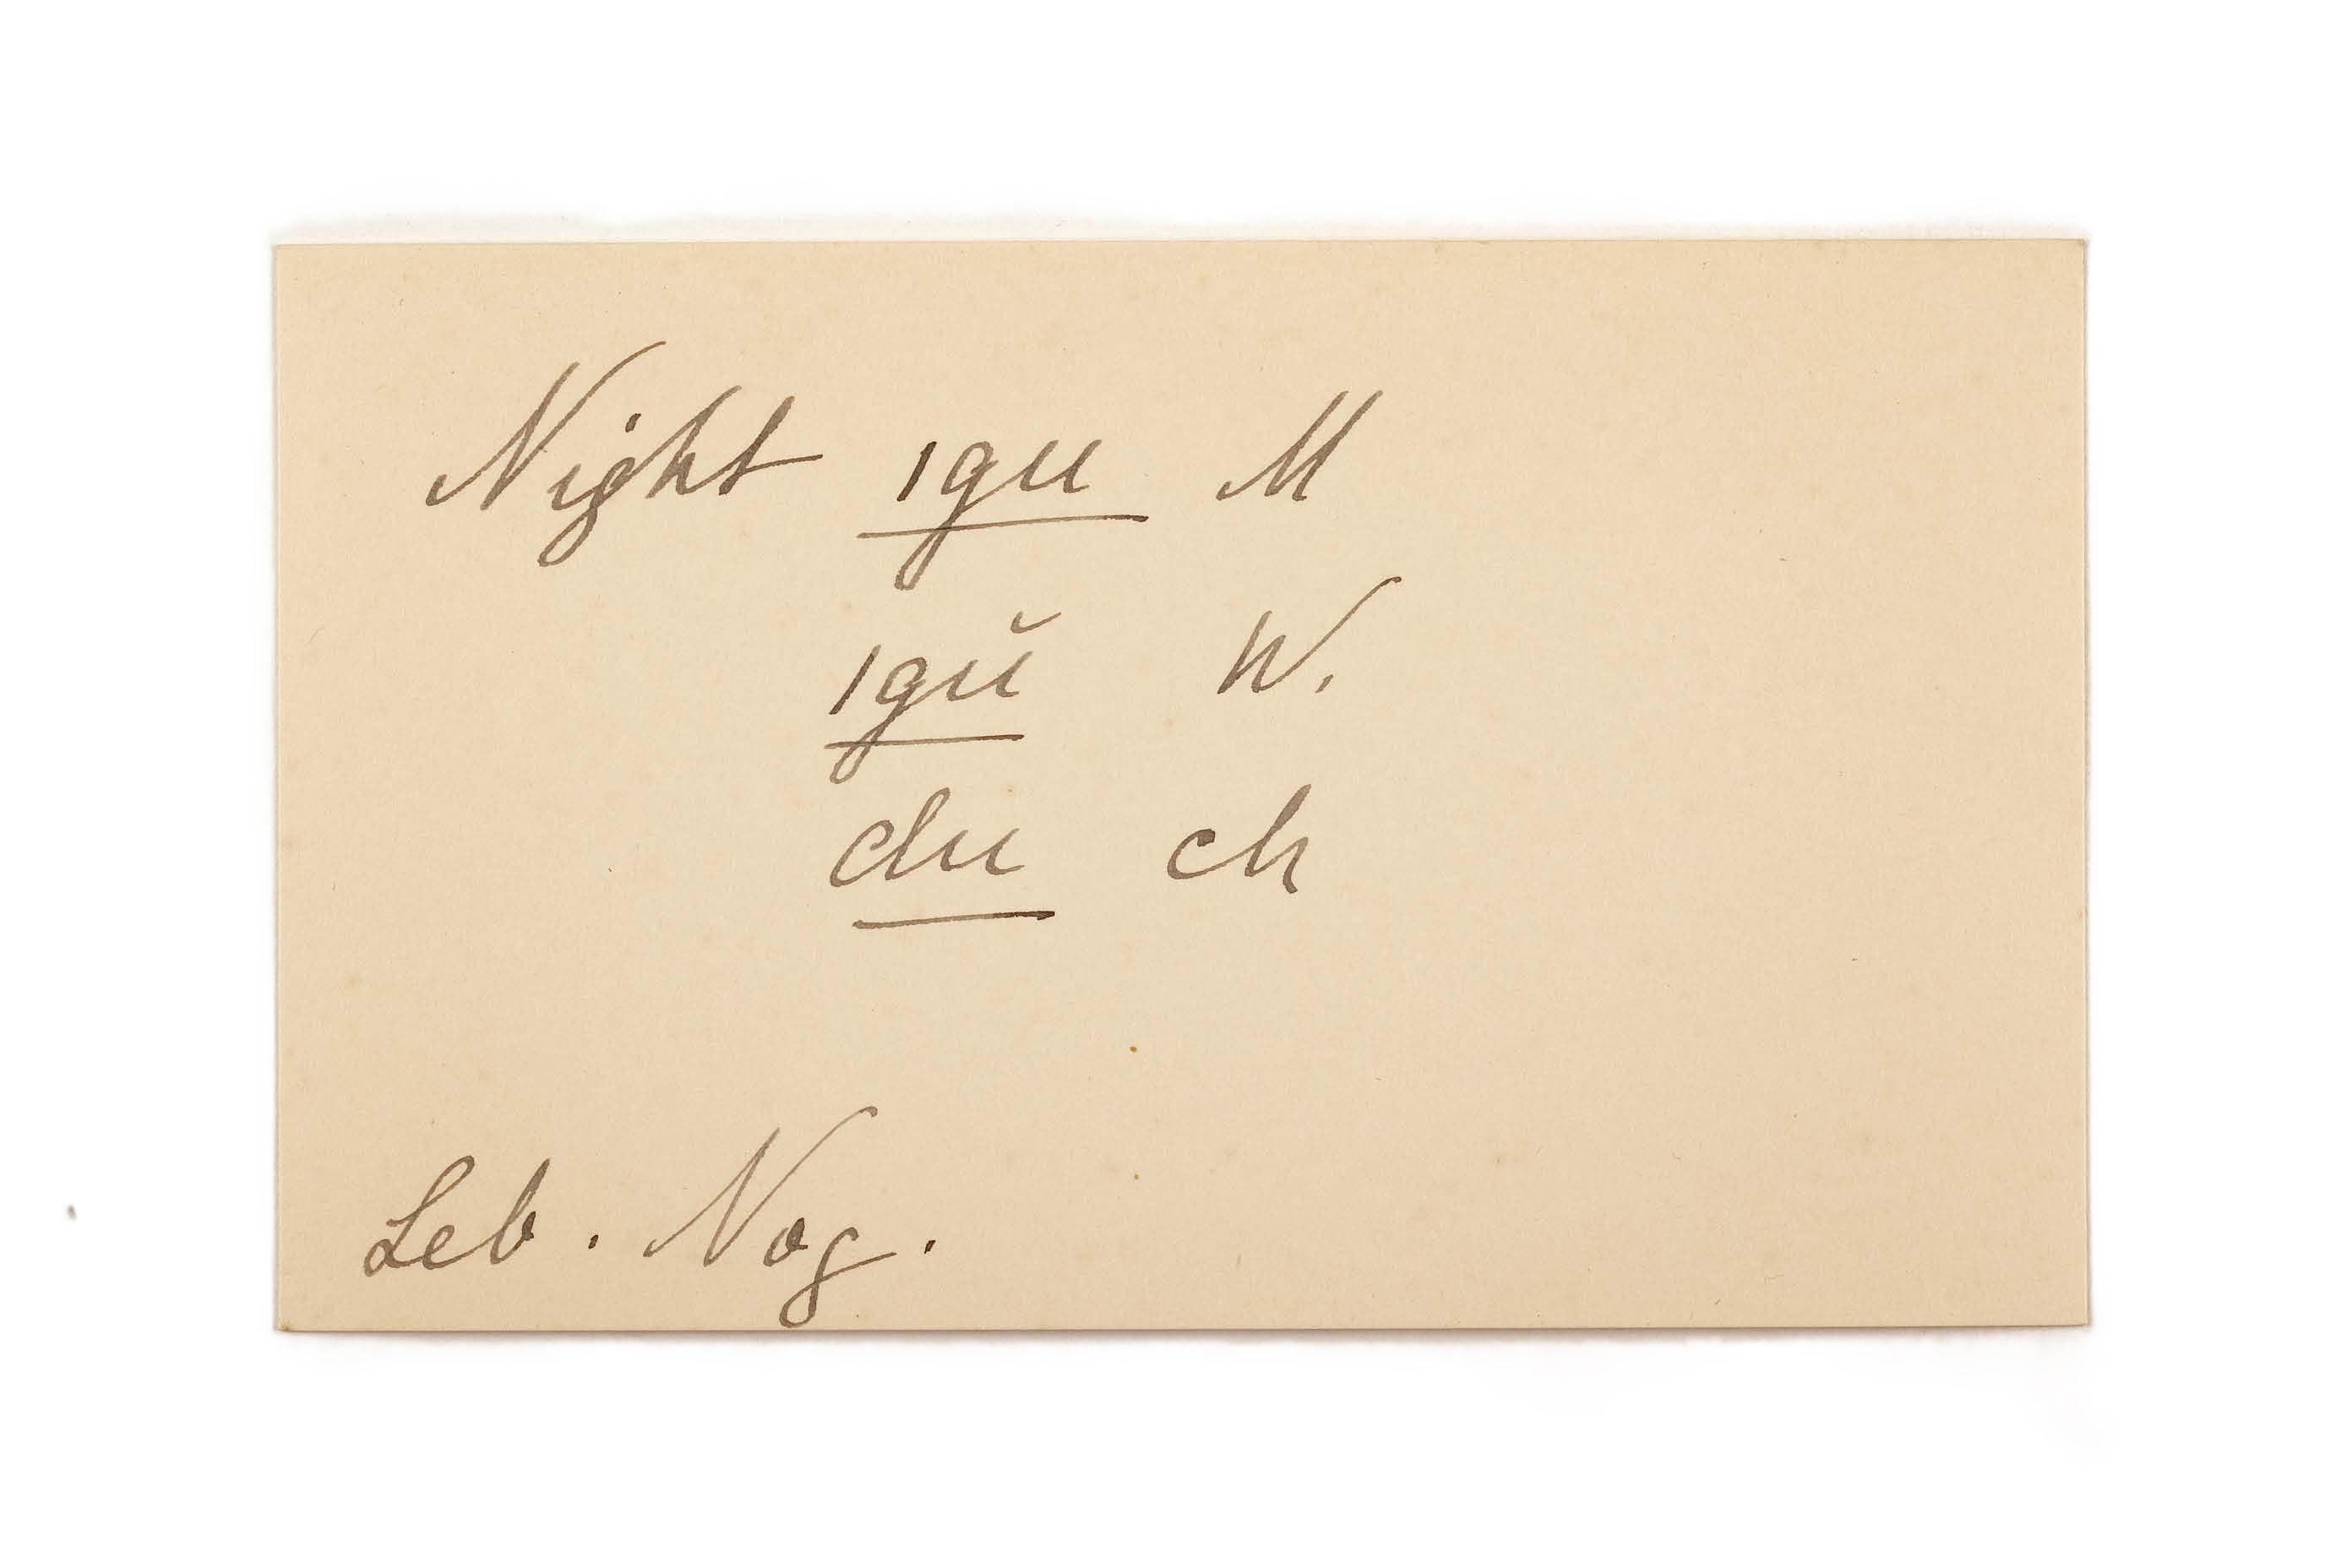 Night ıgu M
ıgŭ W.
du ch
Leb. Nog.